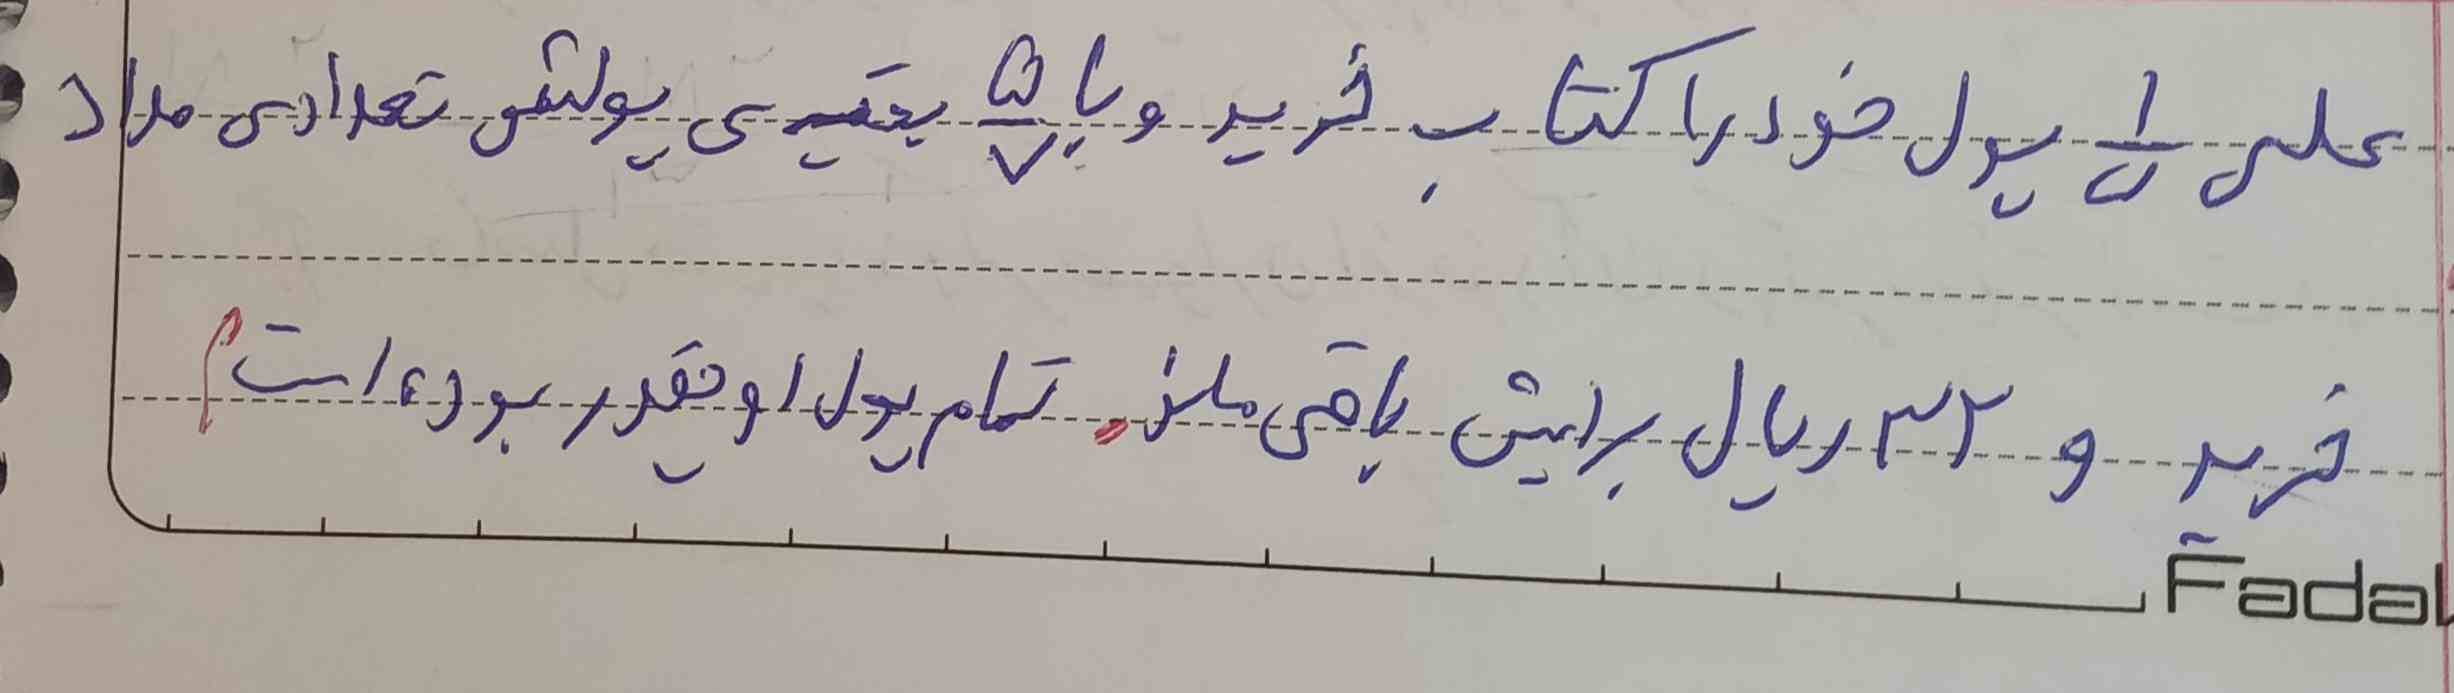 علی ۱/۵ پول خود را کتاب خرید و با ۵/۷ بقیه ی پولش تعدادی مداد
خرید و ۳۲ ریال برایش باقی ماند. تمام پول او چقدر بوده است؟
Fadal